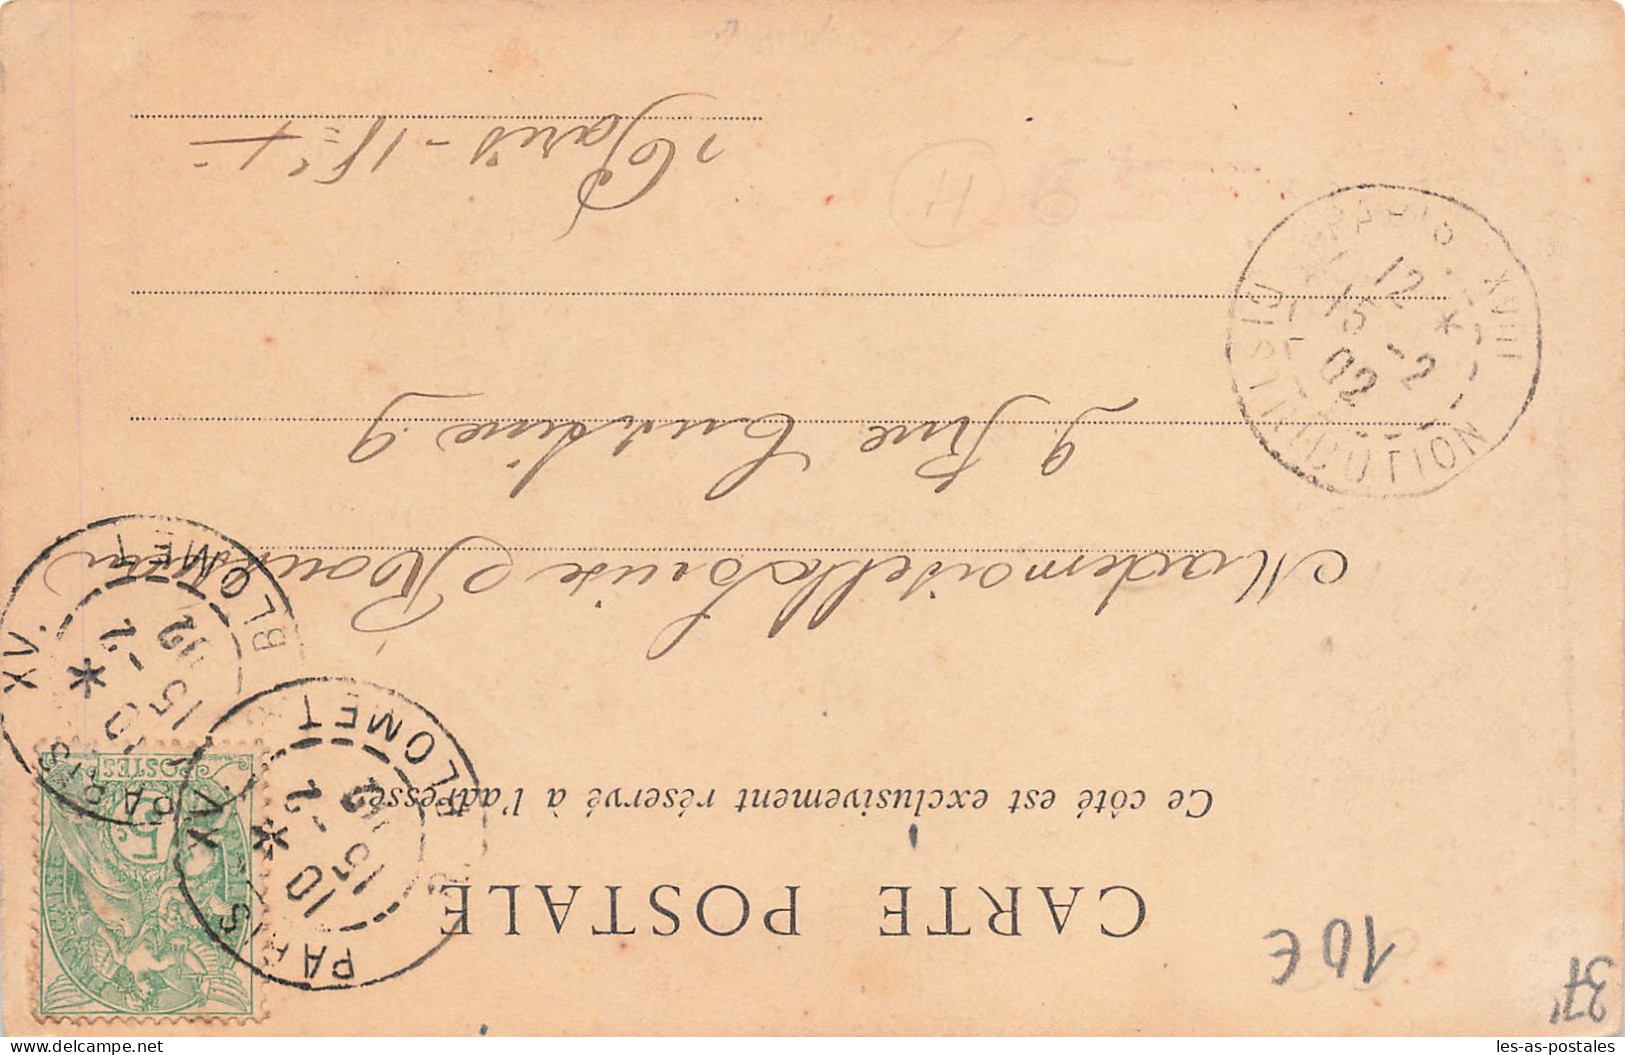 CARTE POSTALE
Ce côté est exclusivement réservé à l'adresse
Mademoiselle Louise
9. Rue Custine. 9
Paris - 18e
PARIS XV.
BLOMET
10
15 -2
02
PARIS XV.
BLOMET
10
15 -2
02
PARIS XVIII
DISTRIBUTION
12
15 -2
02
POSTES
5c
10€
37
H
les-as-postales